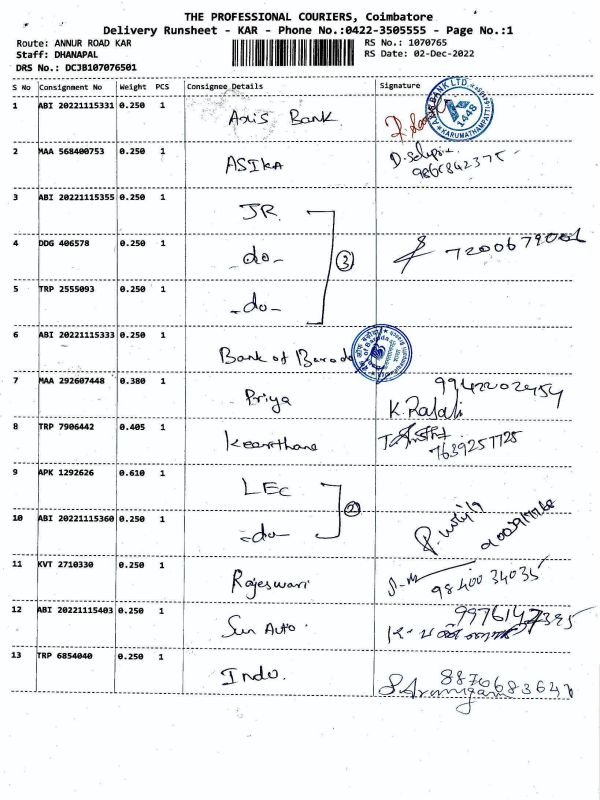 THE PROFESSIONAL COURIERS, Coimbatore
Delivery Runsheet - KAR - Phone No.:0422-3505555 - Page No.:1
Route: ANNUR ROAD KAR RS No.: 1070765
Staff: DHANAPAL RS Date: 02-Dec-2022
DRS No.: DCJB107076501
S No Consignment No Weight PCS Consignee Details Signature
1 ABI 20221115331 0.250 1 Axis Bank
AXIS BANK LTD 1448 KARUMATHAMPATTI
2 MAA 568400753 0.250 1 ASIKA
3 ABI 20221115355 0.250 1 JR.
4 DDG 406578 0.250 1 -do- 3
5 TRP 2555093 0.250 1 -do-
6 ABI 20221115333 0.250 1 Bank of Baroda
7 MAA 292607448 0.380 1 Priya 9942202454
K. Rajali
8 TRP 7906442 0.405 1 Keerthana 7639257725
9 APK 1292626 0.610 1 LEC
10 ABI 20221115360 0.250 1 -do- 2
11 KVT 2710330 0.250 1 Rajeswari 9840034035
12 ABI 20221115403 0.250 1 Sun Auto.
13 TRP 6854040 0.250 1 Indo.